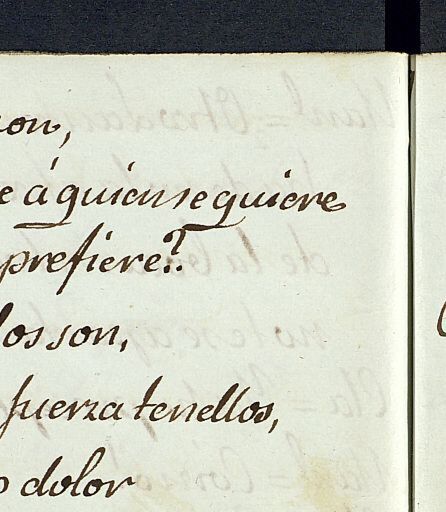 on,
e á quien se quiere
prefiere?.
los son,
fuerza tenellos,
dolor